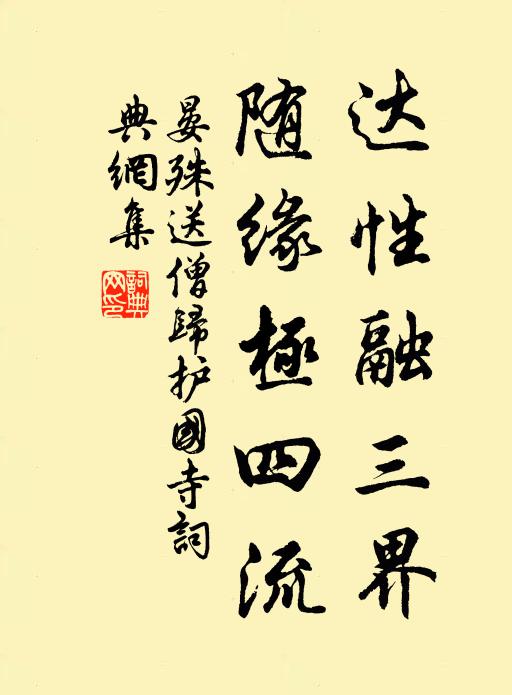 达性融三界
随缘極四流
晏殊送僧歸护國寺詞
典網集
詞典网印